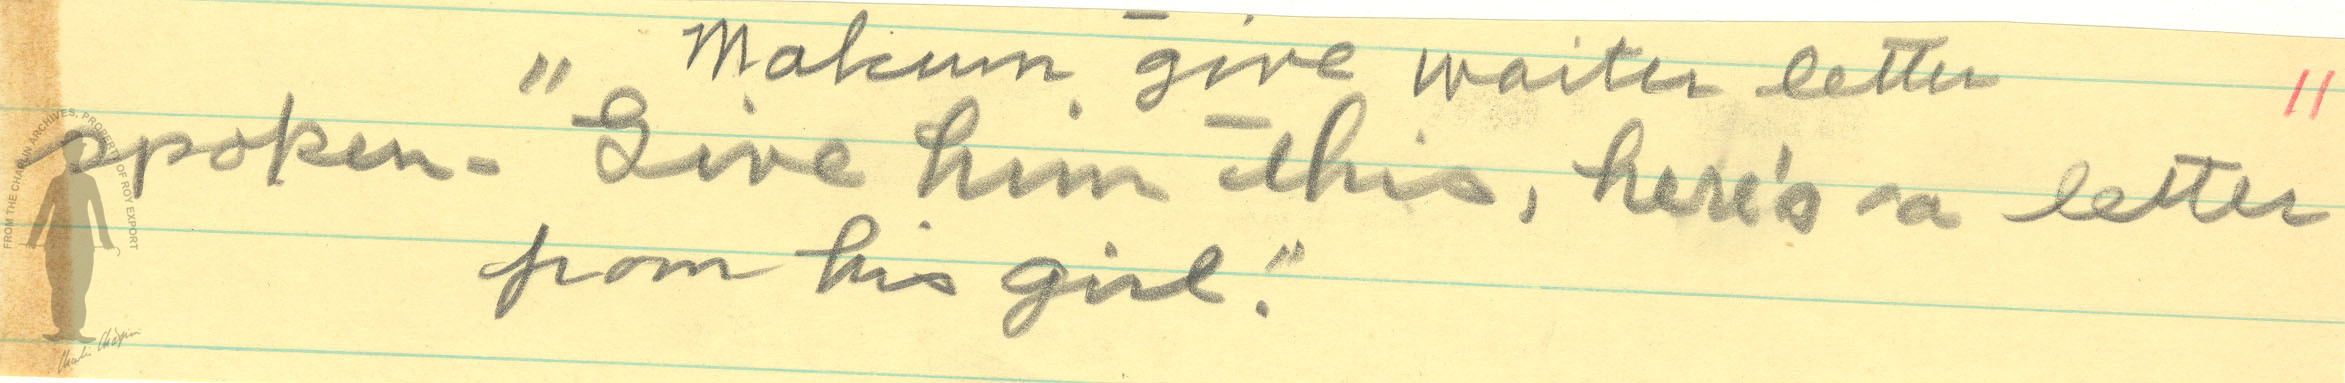 Makum give waiter letter
11
spoken - "Give him this, here's a letter
from his girl."
FROM THE CHAPLIN ARCHIVES, PROPERTY OF ROY EXPORT
Charlie Chaplin